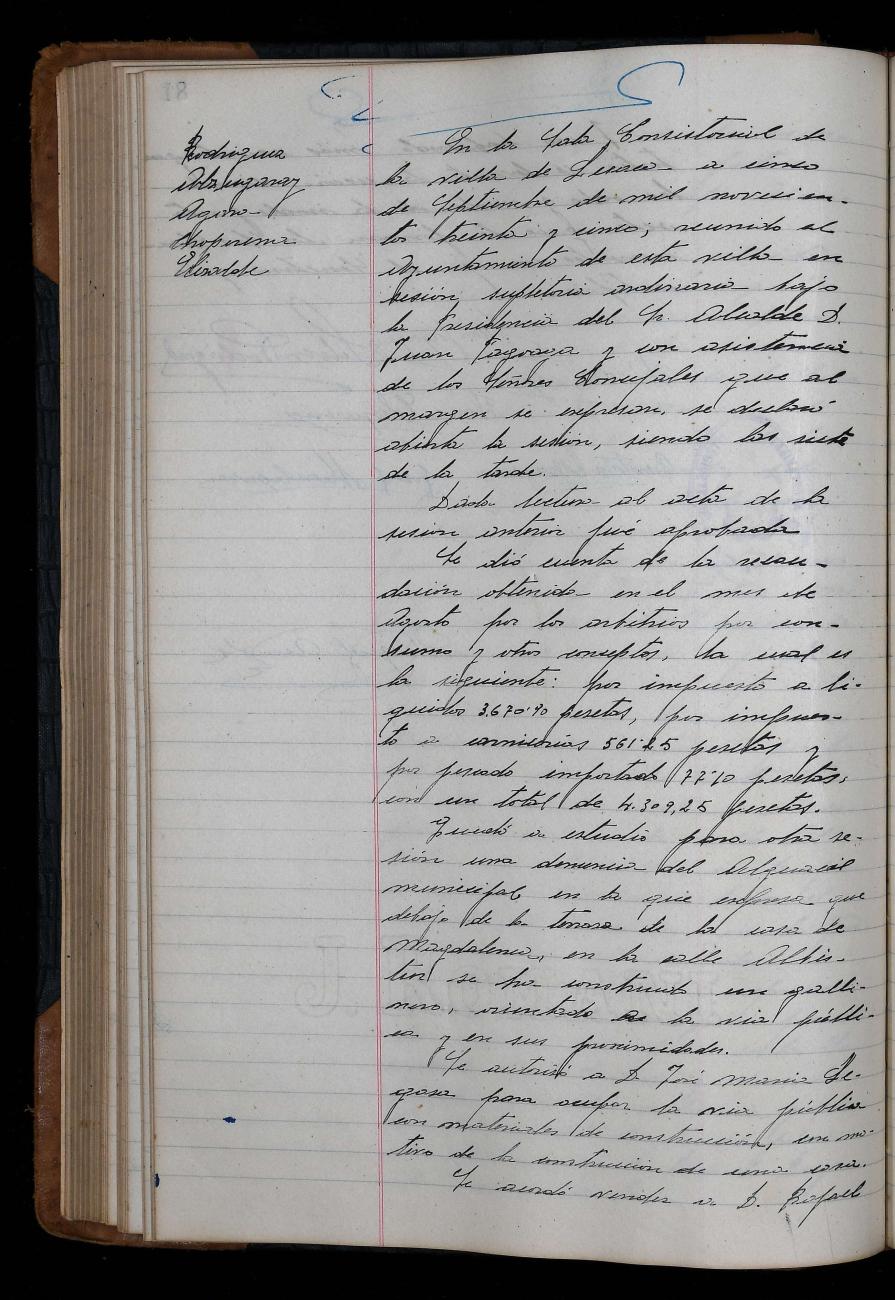 Rodriguez
Agara
Choperena
Elizalde
En la Sala Consistorial de
la villa de Lesaca a cinco
de Septiembre de mil novecien-
tos treinta y cinco; reunido el
Ayuntamiento de esta villa en
sesión supletoria ordinaria bajo
la Presidencia del Sr. Alcalde D.
Juan y con asistencia
de los Señores Concejales que al
margen se expresan, se declaró
abierta la sesion, siendo las siete
de la tarde.
Dada lectura al acta de la
sesion anterior fué aprobada
Se dió cuenta de la recau-
dación obtenida en el mes de
Agosto por los arbitrios por con-
sumo y otros conceptos, la cual es
la siguiente: por impuesto a li-
quidos 3.670'90 pesetas, por impues-
to a carnicerias 561'25 pesetas y
por pescado importado 77'10 pesetas,
con un total de 4.309,25 pesetas.
Quedó a estudio para otra se-
sión una denuncia del Alguacil
municipal en la que expresa que
debajo de la terraza de la casa de
Magdalenea, en la calle Albis-
tur se ha construido un galli-
nero, orientado a la via públi-
ca y en sus proximidades.
Se autorizó a D. José Maria Le-
gasa para ocupar la via pública
con materiales de construcción, con mo-
tivo de la construccion de una casa.
Se acordó vender a D. Rafael